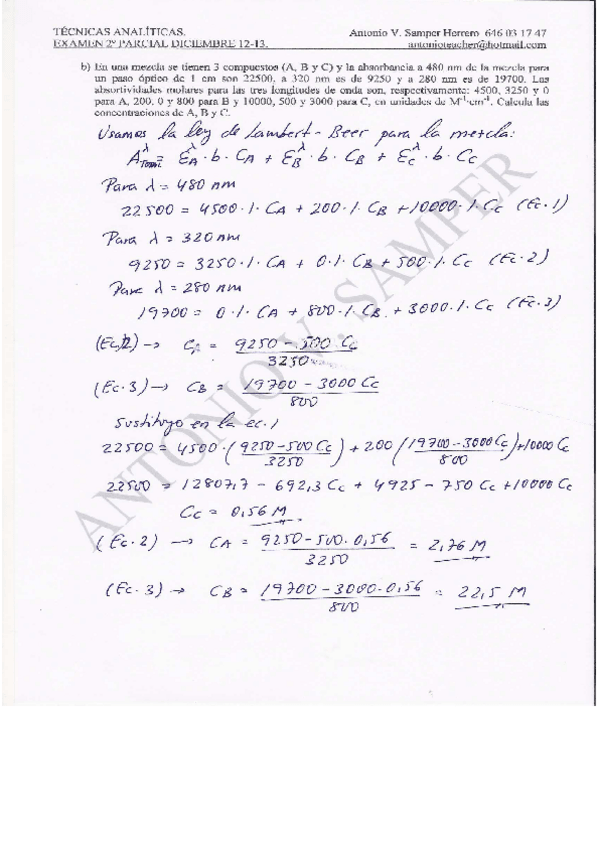 TÉCNICAS ANALÍTICAS. Antonio V. Samper Herrero 646 03 17 47
EXAMEN 2º PARCIAL DICIEMBRE 12-13. antonioteacher@hotmail.com
b) En una mezcla se tienen 3 compuestos (A, B y C) y la absorbancia a 480 nm de la mezcla para
un paso óptico de 1 cm son 22500, a 320 nm es de 9250 y a 280 nm es de 19700. Las
absortividades molares para las tres longitudes de onda son, respectivamente: 4500, 3250 y 0
para A, 200, 0 y 800 para B y 10000, 500 y 3000 para C, en unidades de M⁻¹·cm⁻¹. Calcula las
concentraciones de A, B y C.
Usamos la ley de Lambert-Beer para la mezcla:
A^λ_Total = ε^λ_A · b · C_A + ε^λ_B · b · C_B + ε^λ_C · b · C_C
Para λ = 480 nm
22500 = 4500·1·C_A + 200·1·C_B + 10000·1·C_C (Ec.1)
Para λ = 320 nm
9250 = 3250·1·C_A + 0·1·C_B + 500·1·C_C (Ec.2)
Para λ = 280 nm
19700 = 0·1·C_A + 800·1·C_B + 3000·1·C_C (Ec.3)
(Ec.2) → C_A = (9250 - 500 C_C) / 3250
(Ec.3) → C_B = (19700 - 3000 C_C) / 800
Sustituyo en la ec.1
22500 = 4500·((9250-500 C_C)/3250) + 200((19700-3000 C_C)/800) + 10000 C_C
22500 = 12807,7 - 692,3 C_C + 4925 - 750 C_C + 10000 C_C
C_C = 0,56 M
(Ec.2) → C_A = (9250-500·0,56) / 3250 = 2,76 M
(Ec.3) → C_B = (19700-3000·0,56) / 800 = 22,5 M
ANTONIO V. SAMPER